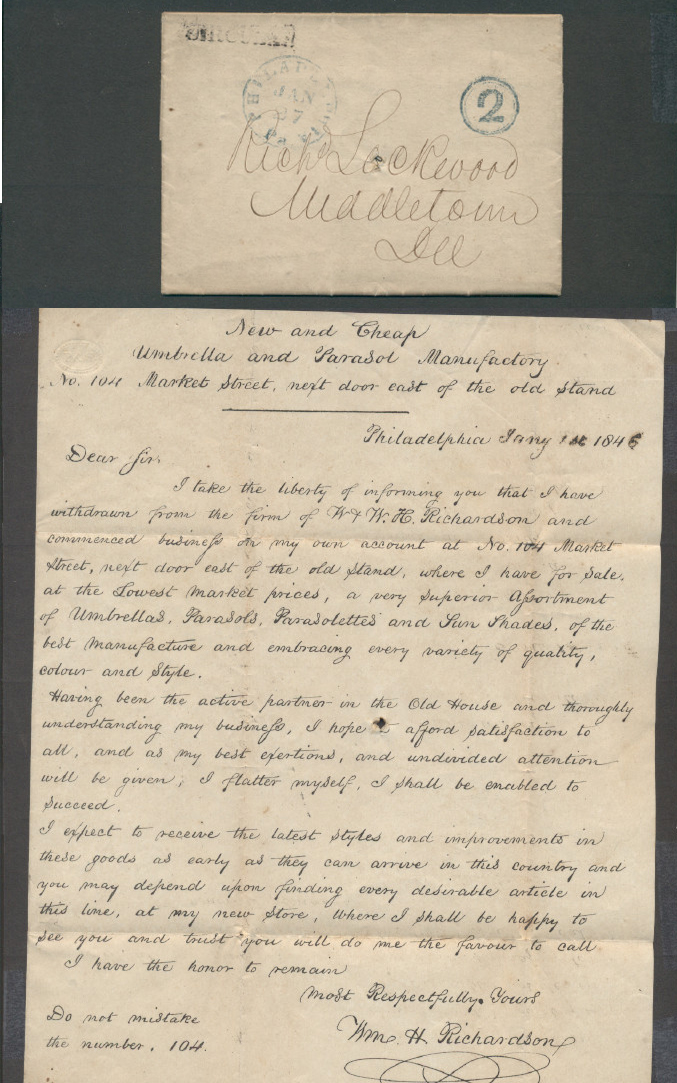 CIRCULAR
PHILADA
JAN
27
Pa
2
Richd Lockwood
Middletown
Del
New and Cheap
Umbrella and Parasol Manufactory
No. 104 Market Street, next door east of the old stand
Philadelphia Jany 1846
Dear Sir,
I take the liberty of informing you that I have
withdrawn from the firm of W & W. H. Richardson and
commenced business on my own account at No. 104 Market
Street, next door east of the old stand, where I have for sale,
at the Lowest market prices, a very superior Assortment
of Umbrellas, Parasols, Parasolettes and Sun Shades, of the
best manufacture and embracing every variety of quality,
colour and style.
Having been the active partner in the Old House and thoroughly
understanding my business, I hope to afford satisfaction to
all, and as my best exertions, and undivided attention
will be given, I flatter myself, I shall be enabled to
succeed.
I expect to receive the latest styles and improvements in
these goods as early as they can arrive in this country and
you may depend upon finding every desirable article in
this line, at my new store, where I shall be happy to
see you and trust you will do me the favour to call
I have the honor to remain
Most Respectfully Yours
Do not mistake
the number. 104.
Wm. H Richardson